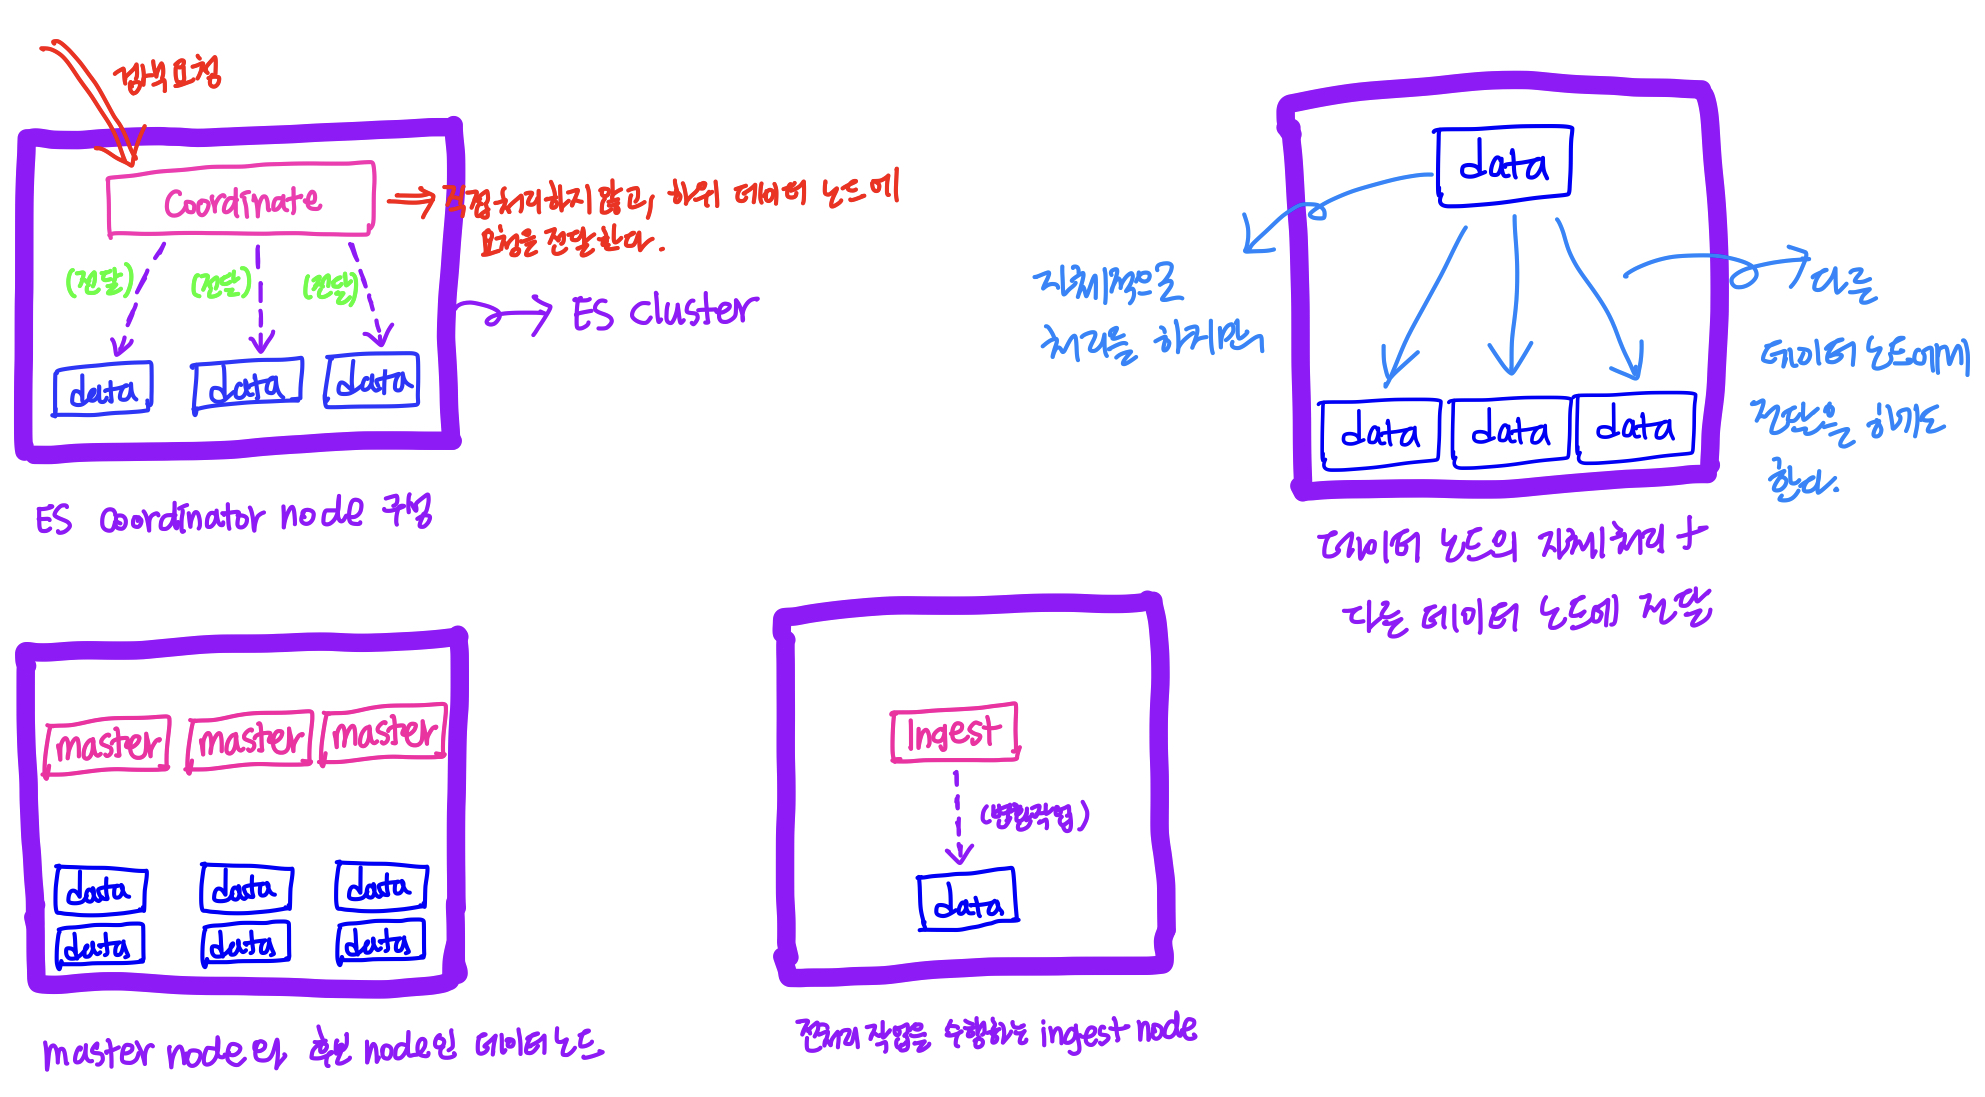 검색요청
Coordinate
직접 처리하지 않고, 하위 데이터 노드에
요청을 전달한다.
(전달) (전달) (전달)
ES Cluster
data data data
ES Coordinator node 구성
data
자체적으로
처리를 하지만
다른
데이터 노드에게
전달을 하기도
한다.
data data data
데이터 노드의 자체처리 +
다른 데이터 노드에 전달
master master master
data data data
data data data
master node와 후보 node인 데이터 노드
Ingest
(변환작업)
data
전처리 작업을 수행하는 ingest node